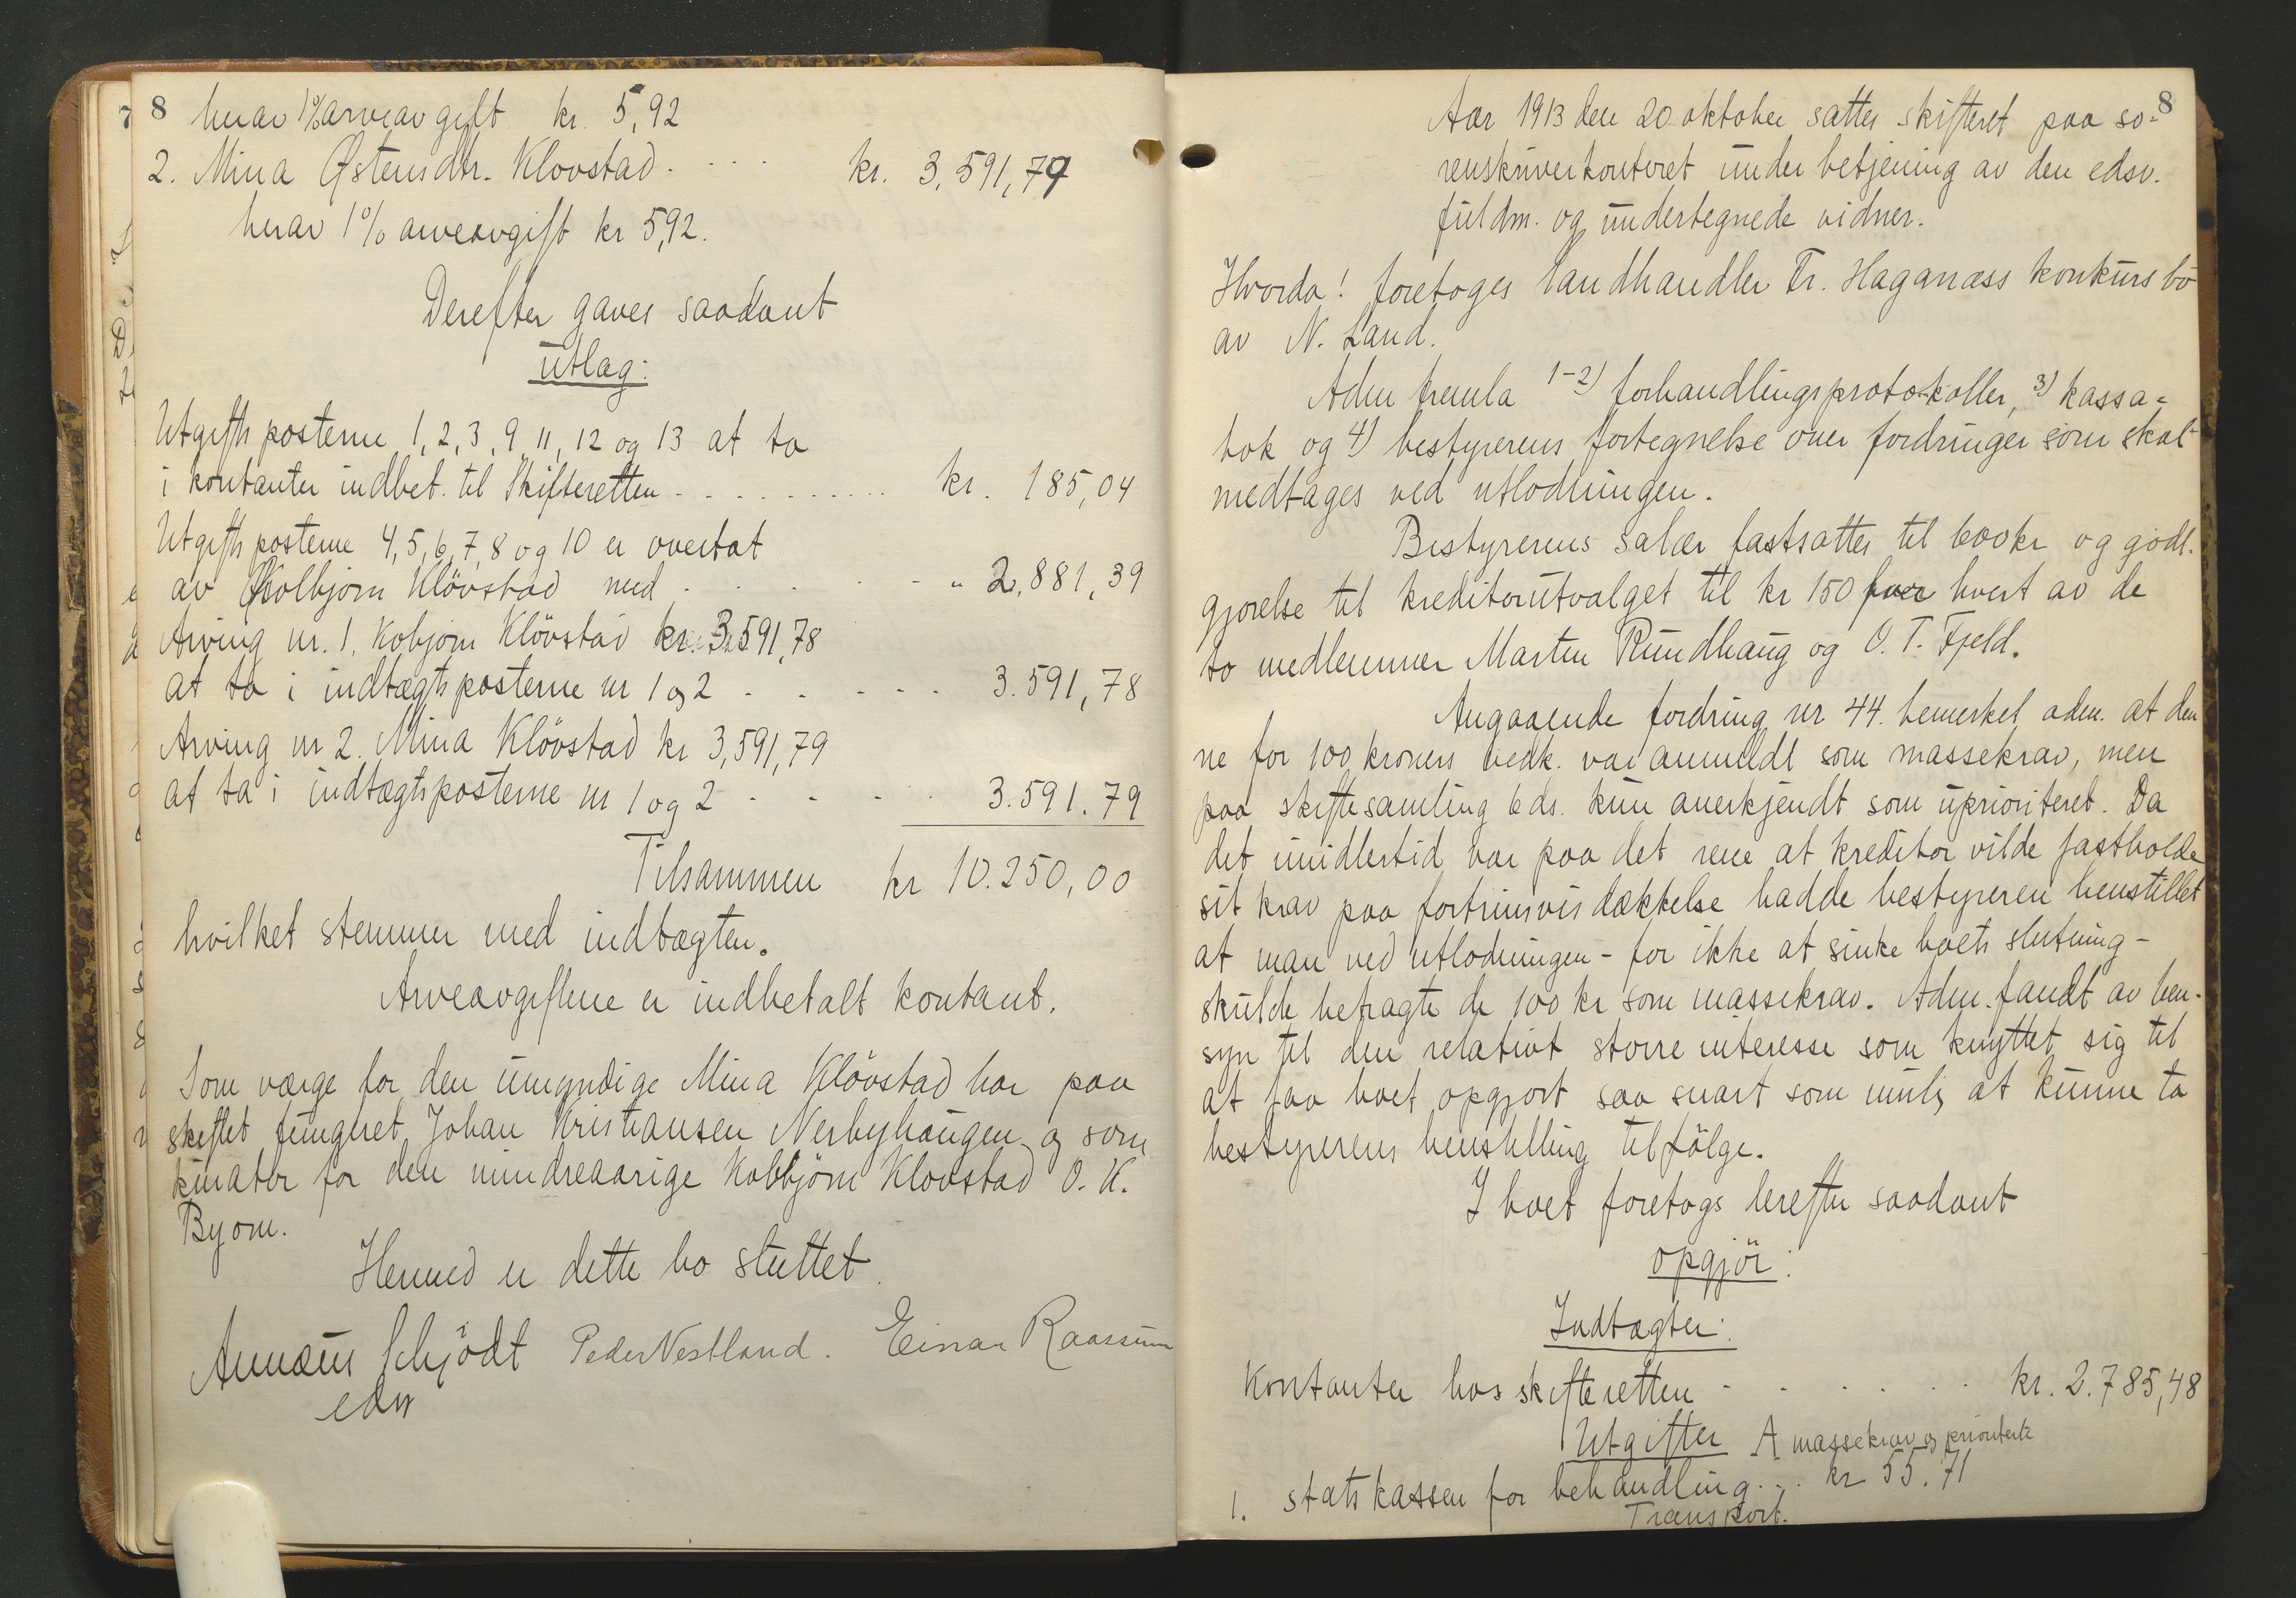 8 herav 1% arveavgift kr. 5,92
2. Mina Østensdtr. Klovstad . . . . kr. 3,591,79
herav 1% arveavgift kr 5,92.
Derefter gaves saadant
utlæg:
Utgiftsposterne 1, 2, 3, 9, 11, 12 og 13 at ta
i kontanter indbet. til Skifteretten . . . . . . . . . . kr. 185,04
Utgiftsposterne 4, 5, 6, 7, 8 og 10 er overtat
av Kolbjørn Klövstad med . . . . . „ 2,881,39
Arving nr. 1. Kobjørn Klövstad kr. 3,591,78
at ta i indtægtsposterne nr 1 og 2 - - - - - 3.591,78
Arving nr 2. Mina Klövstad kr 3,591,79
at ta i indtægtsposterne nr 1 og 2 - - - - 3.591.79
Tilsammen kr 10.250,00
hvilket stemmer med indtægten.
Arveavgiftene er indbetalt kontant.
Som værge for den umyndige Mina Klövstad har paa
skiftet fungeret Johan Kristiansen Nerbyhaugen og som
kurator for den mindreaarige Kobbjörn Klovstad O. K.
Byom.
Hermed er dette bo sluttet.
Annæus Schjödt Peder Vestland. Einar Raassum
edsv
8
Aar 1913 den 20 oktober sattes skifteret paa so-
renskriverkontoret under betjening av den edsv.
fuldm. og undertegnede vidner.
Hvorda! foretoges landhandler Fr. Haganæss konkursbo
av N. Land.
Adm fremla 1-2) forhandlingsprotokoller, 3) kassa-
bok og 4) bestyrerens fortegnelse over fordringer som skal
medtages ved utlodningen.
Bestyrerens salær fastsattes til 600 kr og godt-
gjorelse til kreditorutvalget til kr 150 hver hvert av de
to medlemmer Marten Rundhaug og O. T. Fjeld.
Angaaende fordring nr 44. bemerket adm. at den
ne for 100 kroners vedk. var anmeldt som massekrav, men
paa skiftesamling 6 ds. kun anerkjendt som uprioriteret. Da
det imidlertid var paa det rene at kreditor vilde fastholde
sit krav paa fortrinsvis dækkelse hadde bestyreren henstillet
at man ved utlodningen - for ikke at sinke boets slutning -
skulde betragte de 100 kr som massekrav. Adm. fandt av hen-
syn til den relativt storre interesse som knyttet sig til
at faa boet opgjort saa snart som mulig at kunne ta
bestyrerens henstilling tilfölge.
I boet foretogs derefter saadant
opgjör:
Indtægter:
Kontanter hos skifteretten - . . . . . kr. 2.785,48
Utgifter A massekrav og prioriterte
1. statskassen for behandling . . . kr 55.71
Transport.